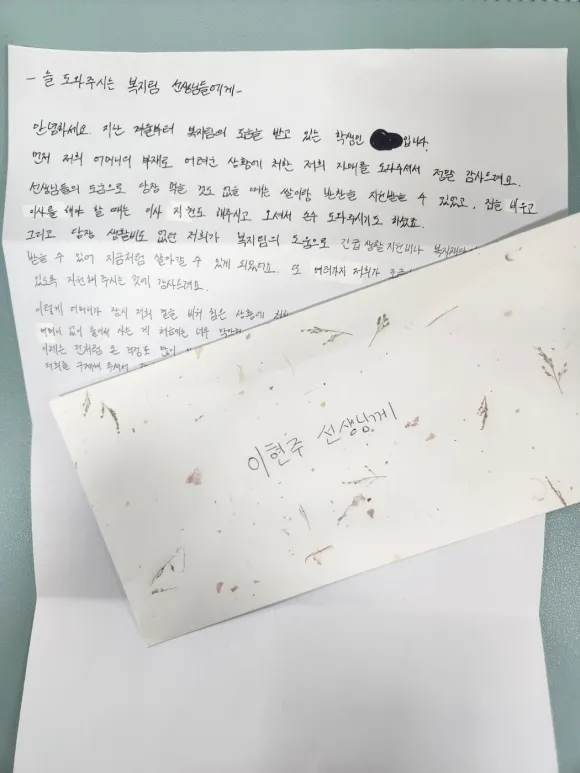 - 늘 도와주시는 복지팀 선생님들에게 -
안녕하세요. 지난 겨울부터 복지팀의 도움을 받고 있는 학생인 입니다.
먼저 저희 어머니의 부재로 어려운 상황에 처한 저희 자매를 도와주셔서 정말 감사드려요.
선생님들의 도움으로 당장 먹을 것도 없을 때는 쌀이랑 반찬을 지원받을 수 있었고, 집을 비우고
이사를 해야 할 때는 이사 지원도 해주시고 오셔서 손수 도와주시기도 하셨죠.
그리고 당장 생활비도 없던 저희가 복지팀의 도움으로 긴급 생활지원비나 복지재단
받을 수 있어 지금처럼 살아갈 수 있게 되었어요. 또 여러가지 저희가
있도록 지원해 주시는 것에 감사드려요.
이렇게 어머니가 잠시 저희 곁을 비워 힘든 상황에
어머니 없이 둘이서 사는 게 처음에는 너무 막막
이제는 전처럼 큰 걱정도 많이
저희를 구제해 주셔서
이현주 선생님께